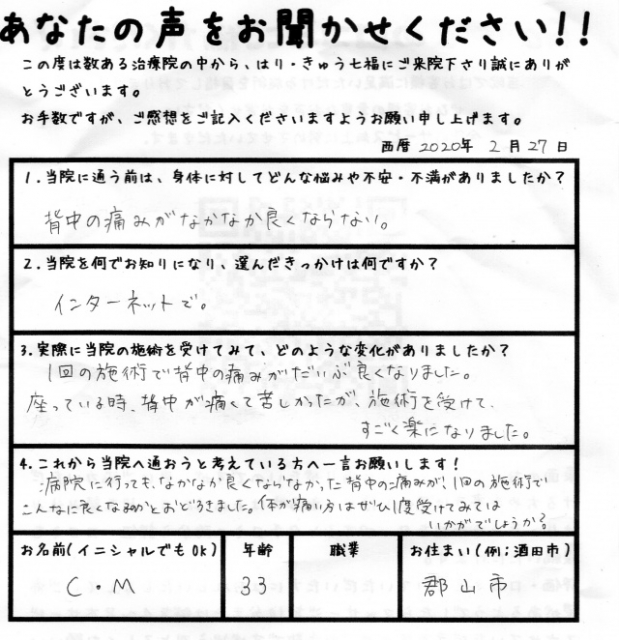 あなたの声をお聞かせください!!
この度は数ある治療院の中から、はり・きゅう七福にご来院下さり誠にありが
とうございます。
お手数ですが、ご感想をご記入くださいますようお願い申し上げます。
西暦 2020年 2月 27日
1.当院に通う前は、身体に対してどんな悩みや不安・不満がありましたか?
背中の痛みがなかなか良くならない。
2.当院を何でお知りになり、選んだきっかけは何ですか?
インターネットで。
3.実際に当院の施術を受けてみて、どのような変化がありましたか?
1回の施術で背中の痛みがだいぶ良くなりました。
座っている時、背中が痛くて苦しかったが、施術を受けて、
すごく楽になりました。
4.これから当院へ通おうと考えている方へ一言お願いします!
病院に行っても、なかなか良くならなかった背中の痛みが、1回の施術で
こんなに良くなるのかとおどろきました。体が痛い方はぜひ1度受けてみては
いかがでしょうか?
お名前(イニシャルでもOK) 年齢 職業 お住まい(例;酒田市)
C・M 33 郡山市